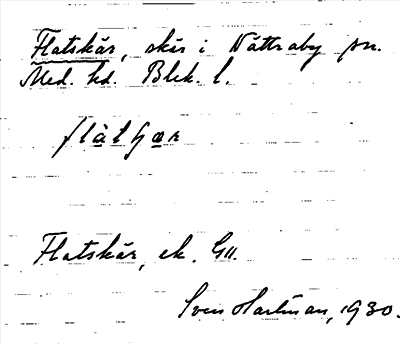 Flatskär, skär i Nättraby sn.
Med. hd. Blek. l.
Flatskär, ek. G11.
Sven Hartman, 1930.